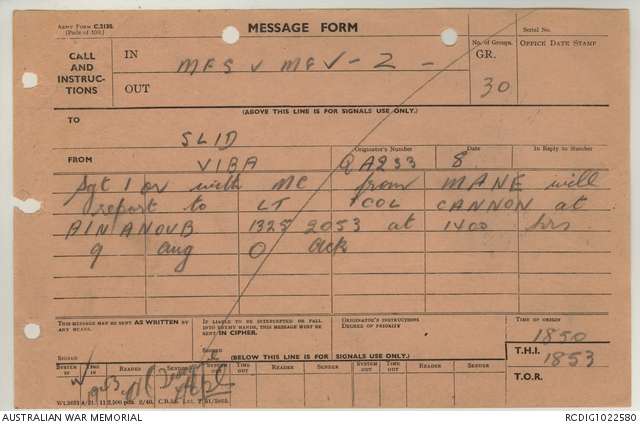 ARMY FORM C.2136.
(Pads of 100.)
MESSAGE FORM
Serial No.
CALL AND INSTRUCTIONS
IN
MFS V MFV-2 -
No. of Groups.
GR.
30
OFFICE DATE STAMP
OUT
(ABOVE THIS LINE IS FOR SIGNALS USE ONLY.)
TO
SLID
FROM
VIBA
Originator's Number
QA233
Date
8
In Reply to Number
Sgt 1 or with MC from MANE will
report to LT COL CANNON at
AIN ANOUB 1325 2053 at 1400 hrs
9 aug O ack
THIS MESSAGE MAY BE SENT AS WRITTEN BY ANY MEANS.
IF LIABLE TO BE INTERCEPTED OR FALL INTO ENEMY HANDS, THIS MESSAGE MUST BE SENT IN CIPHER.
ORIGINATOR'S INSTRUCTIONS
DEGREE OF PRIORITY
TIME OF ORIGIN
1850
SIGNED
SIGNED
(BELOW THIS LINE IS FOR SIGNALS USE ONLY.)
T.H.I.
1853
T.O.R.
SYSTEM IN
TIME IN
READER
SENDER
SYSTEM OUT
TIME OUT
READER
SENDER
SYSTEM OUT
TIME OUT
READER
SENDER
AUSTRALIAN WAR MEMORIAL
RCDIG1022580